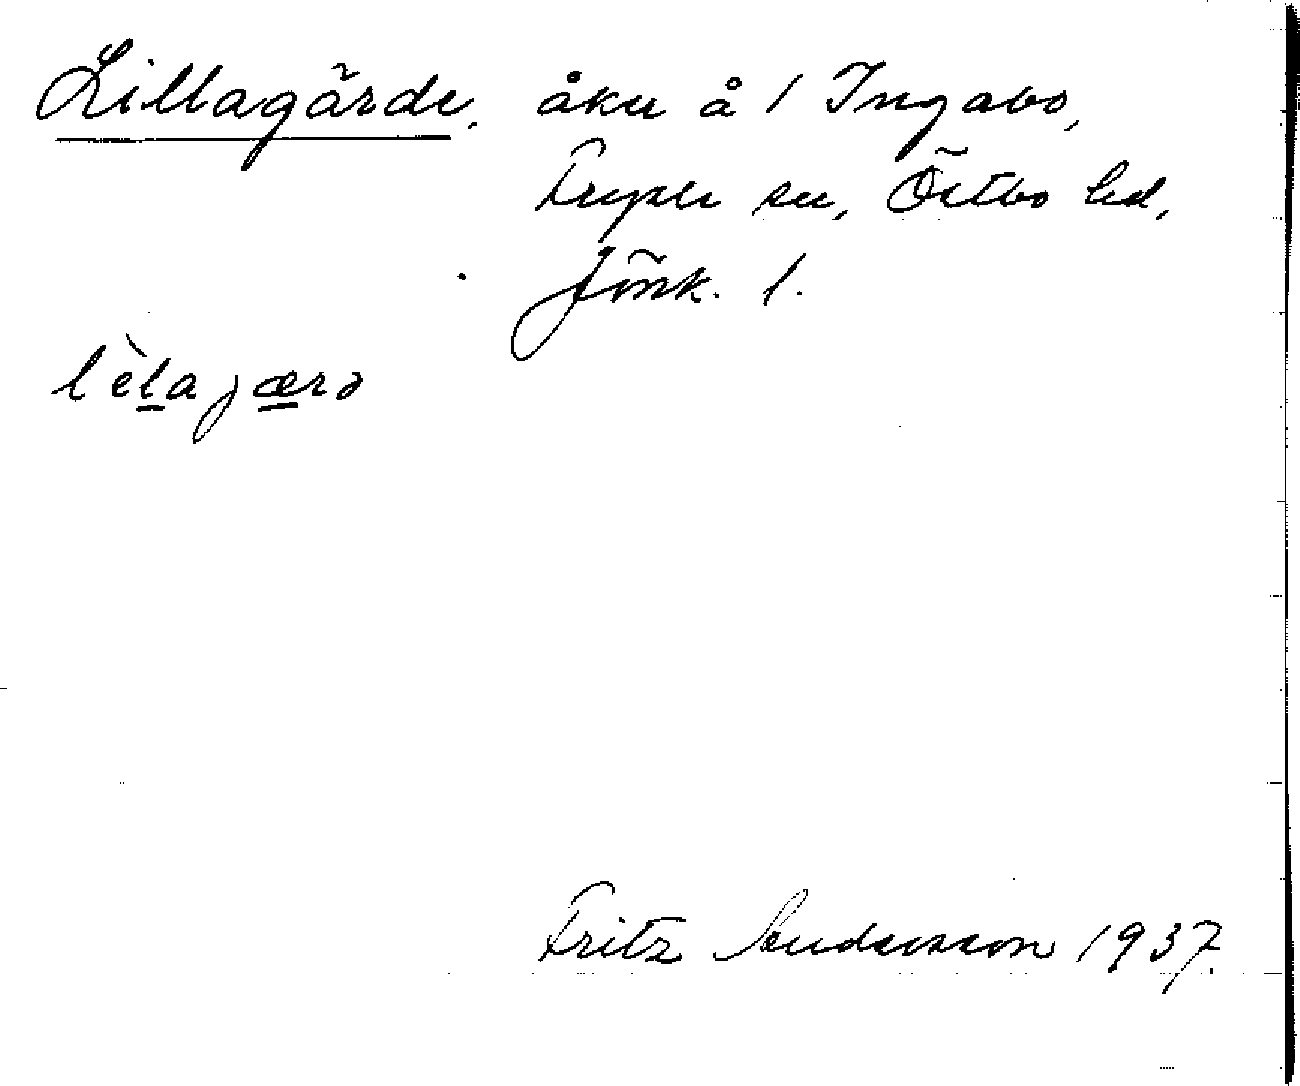 Lillagärde, åker å 1 Ingabo,
Fryele sn, Östbo hd,
Jönk. l.
lèlajærə
Fritz Andersson 1937.